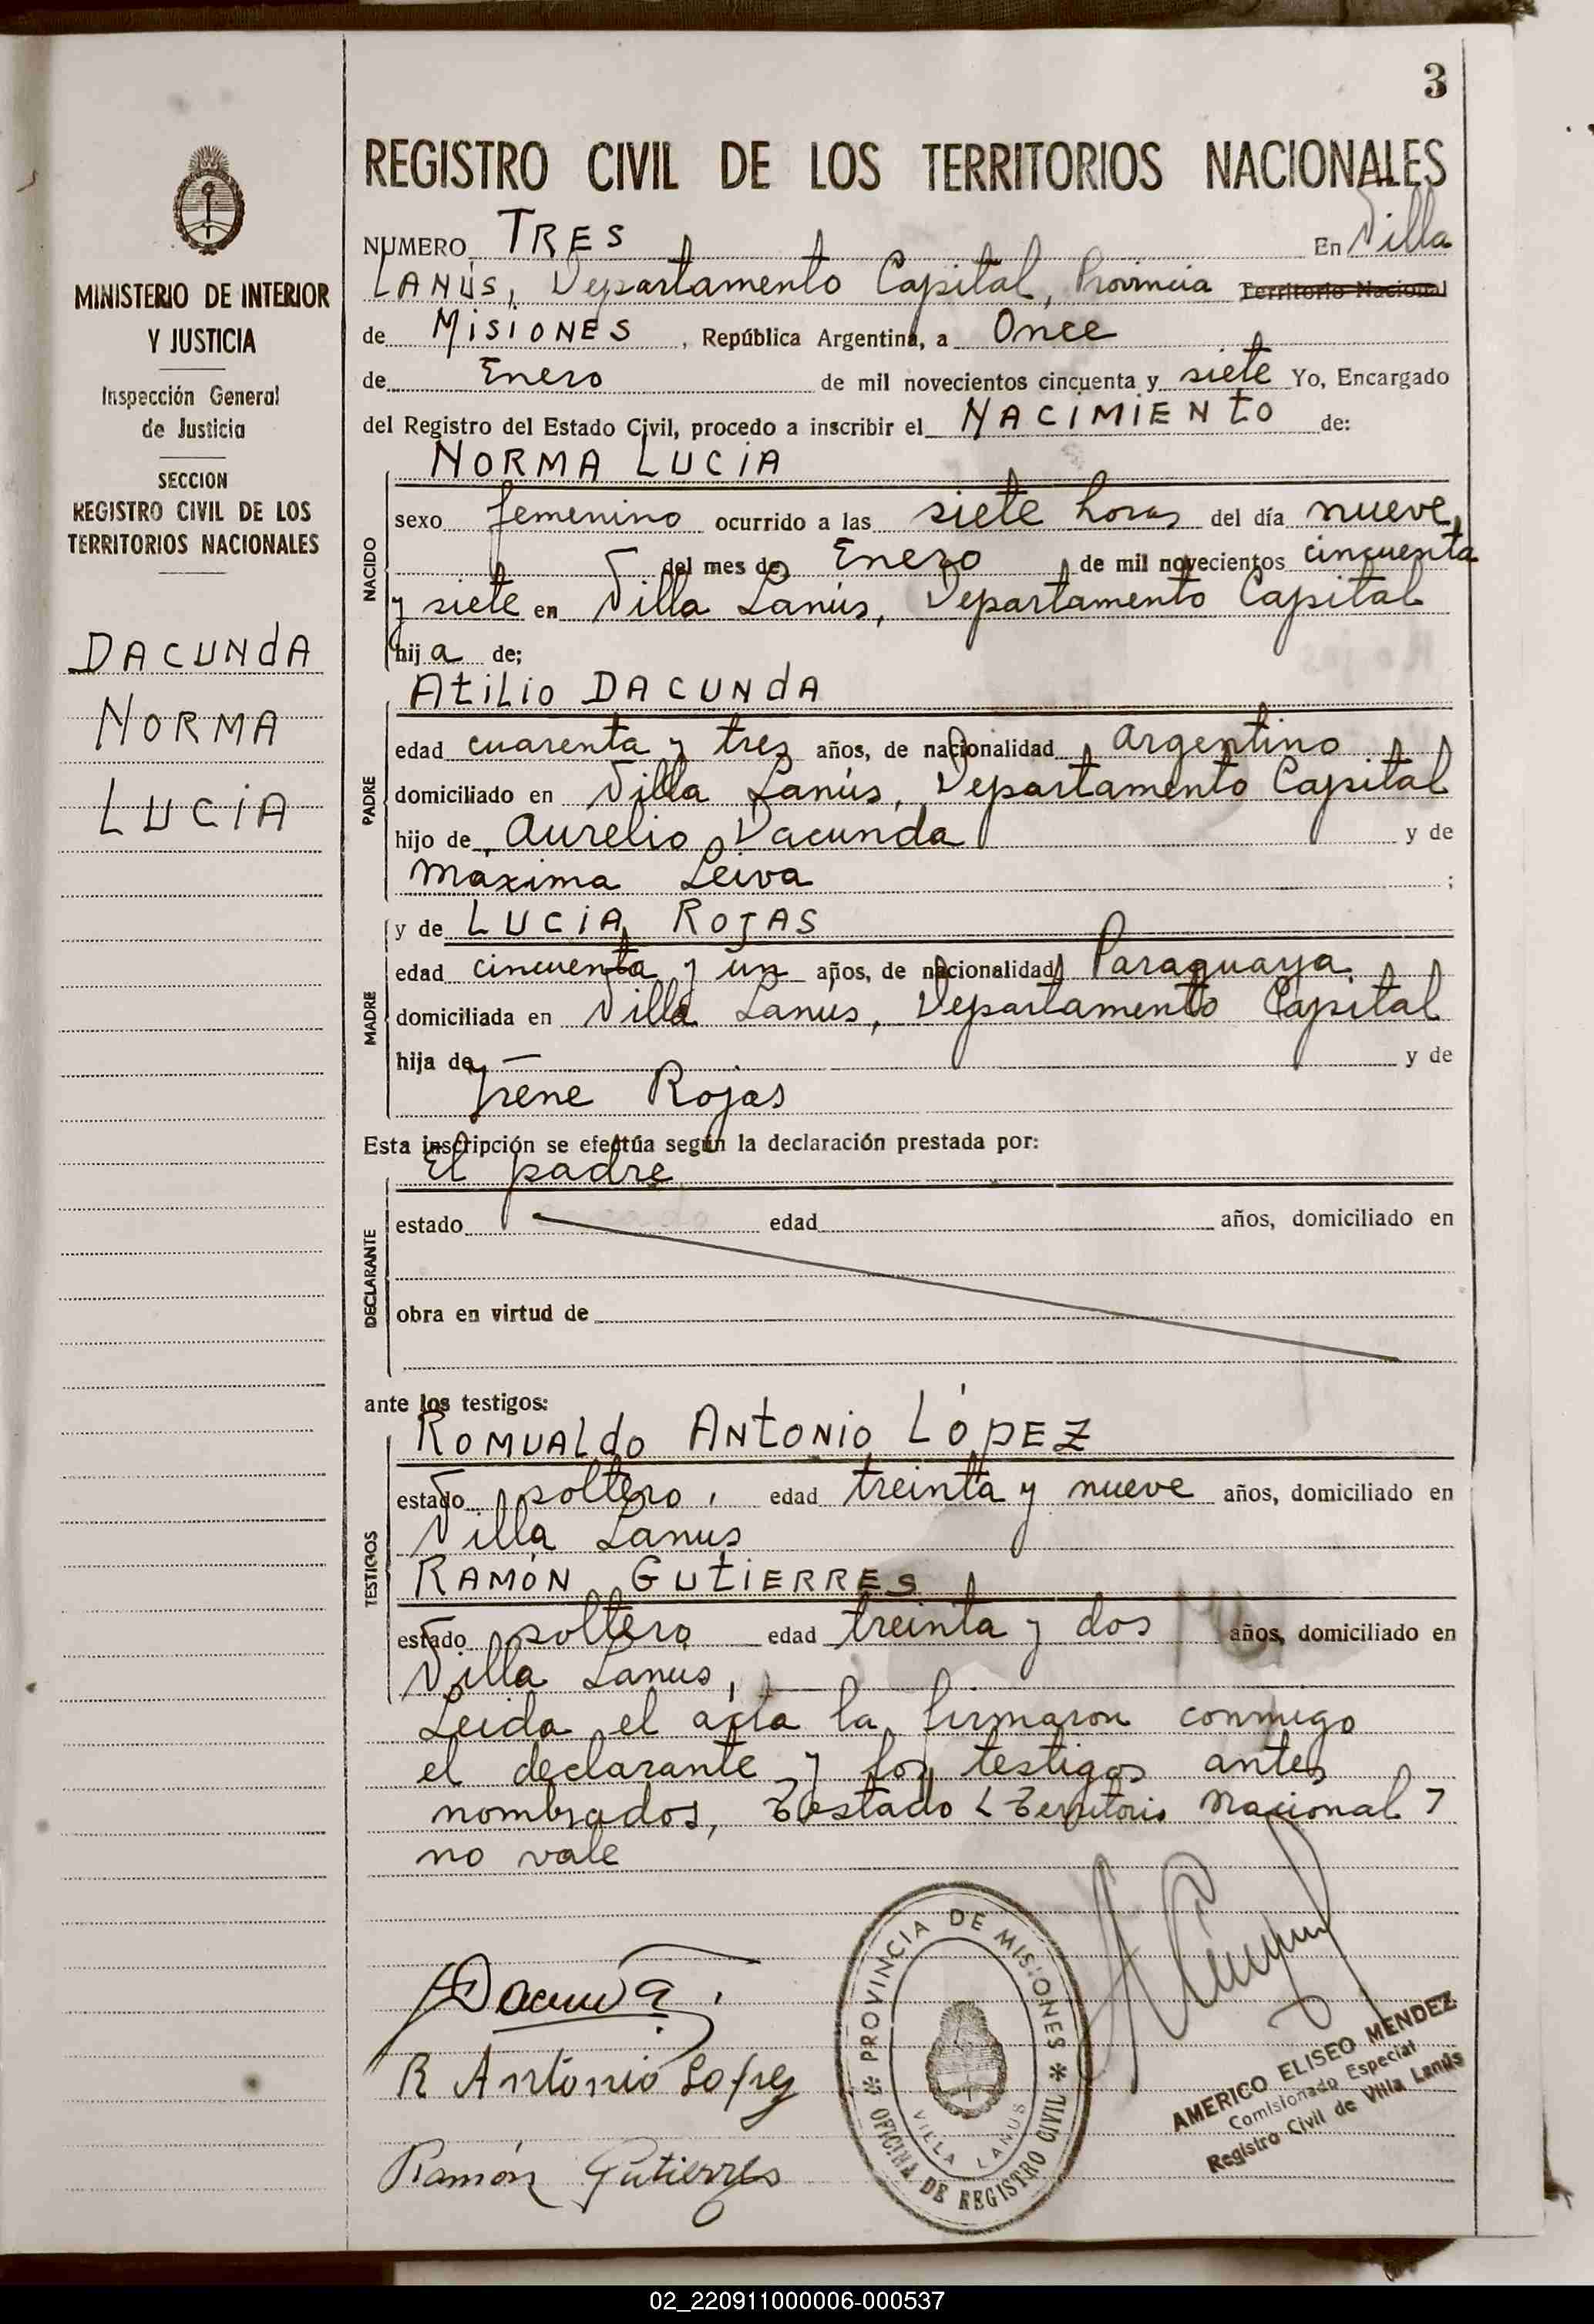 3
REGISTRO CIVIL DE LOS TERRITORIOS NACIONALES
MINISTERIO DE INTERIOR
Y JUSTICIA
Inspección General
de Justicia
SECCION
REGISTRO CIVIL DE LOS
TERRITORIOS NACIONALES
DACUNdA
NORMA
LUCIA
NUMERO TRES En Villa
LANÚS, Departamento Capital, Provincia Territorio Nacional
de MISIONES, República Argentina, a Once
de Enero de mil novecientos cincuenta y siete Yo, Encargado
del Registro del Estado Civil, procedo a inscribir el NACIMIENtO de:
NORMA LUCIA
NACIDO
sexo femenino ocurrido a las siete horas del día nueve,
del mes de Enero de mil novecientos cincuenta
y siete en Villa Lanús, Departamento Capital
hija de;
PADRE
AtiLio DACUNdA
edad cuarenta y tres años, de nacionalidad argentino
domiciliado en Villa Lanús, Departamento Capital
hijo de Aurelio Dacunda y de
Maxima Leiva ;
MADRE
y de LUCIA ROJAS
edad cincuenta y un años, de nacionalidad Paraguaya.
domiciliada en Villa Lanus, Departamento Capital
hija de — y de
Irene Rojas
Esta inscripción se efectúa según la declaración prestada por:
DECLARANTE
El padre
estado edad años, domiciliado en
obra en virtud de
ante los testigos:
TESTIGOS
ROMUALdo ANtONIO LÓPEZ
estado soltero, edad treinta y nueve años, domiciliado en
Villa Lanus
RAMÓN GUtIERRES
estado soltero edad treinta y dos años, domiciliado en
Villa Lanus,
Leida el acta la firmaron conmigo
el declarante y los testigos antes
nombrados, Testado < Territorio Nacional >
no vale
R Antonio Lopez
Ramón Gutierres
PROVINCIA DE MISIONES
VILLA LANUS
OFICINA DE REGISTRO CIVIL
AMERICO ELISEO MENDEZ
Comisionado Especial
Registro Civil de Villa Lanús
02_220911000006-000537